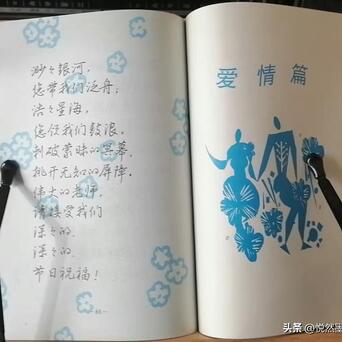 渺々银河，
您带我们泛舟；
浩々星海，
您促我们鼓浪。
刺破蒙昧的黑幕，
挑开无知的屏障。
伟大的老师，
请接受我们
深々的、
深々的、
节日祝福！
爱情篇
头条 @悦然